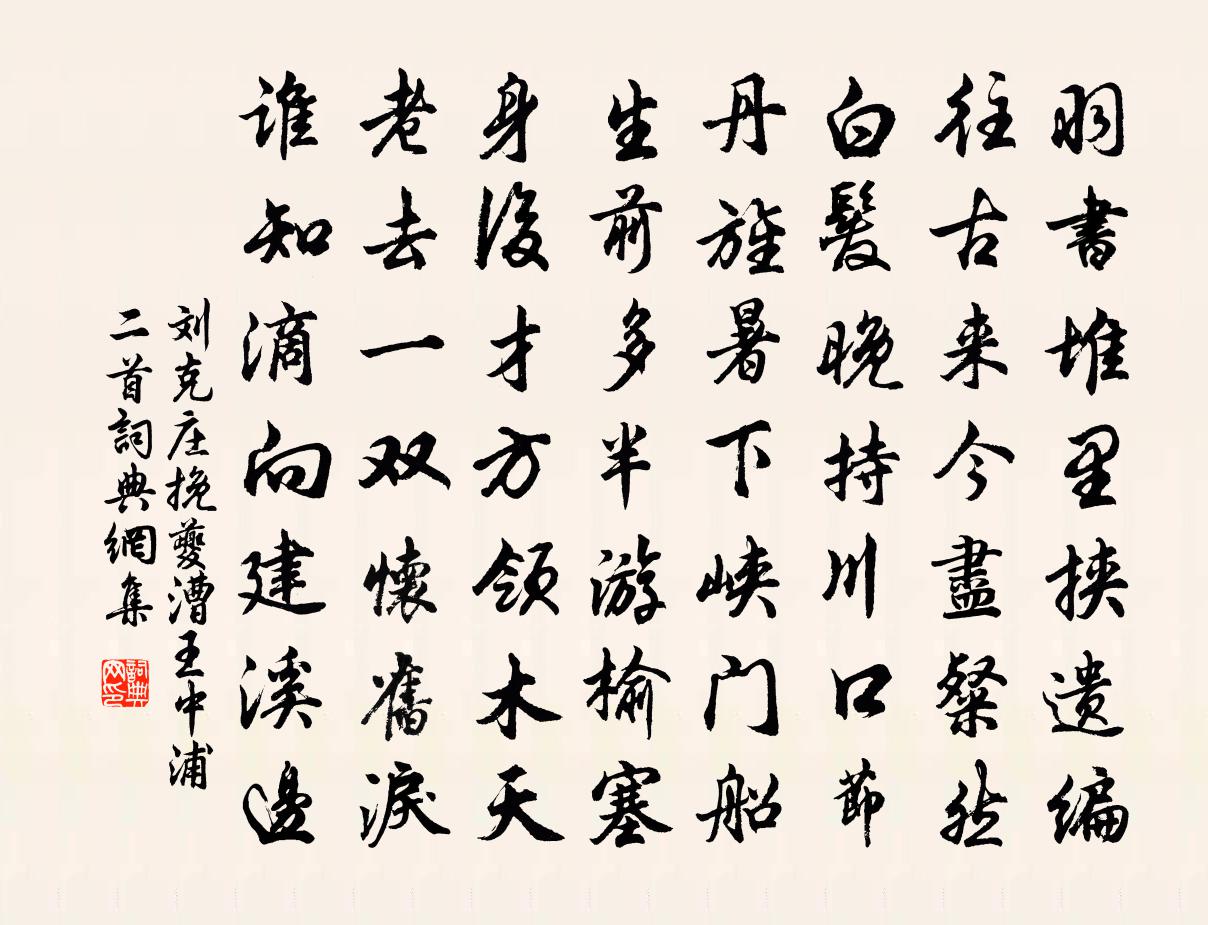 羽書堆里挟遗编
往古来今盡粲然
白髮晚持川口節
丹旌暑下峡门船
生前多半游榆塞
身後才方领木天
老去一双懷舊淚
谁知滴向建溪邊
刘克庄挽夔漕王中浦
二首詞典網集
詞典
网印